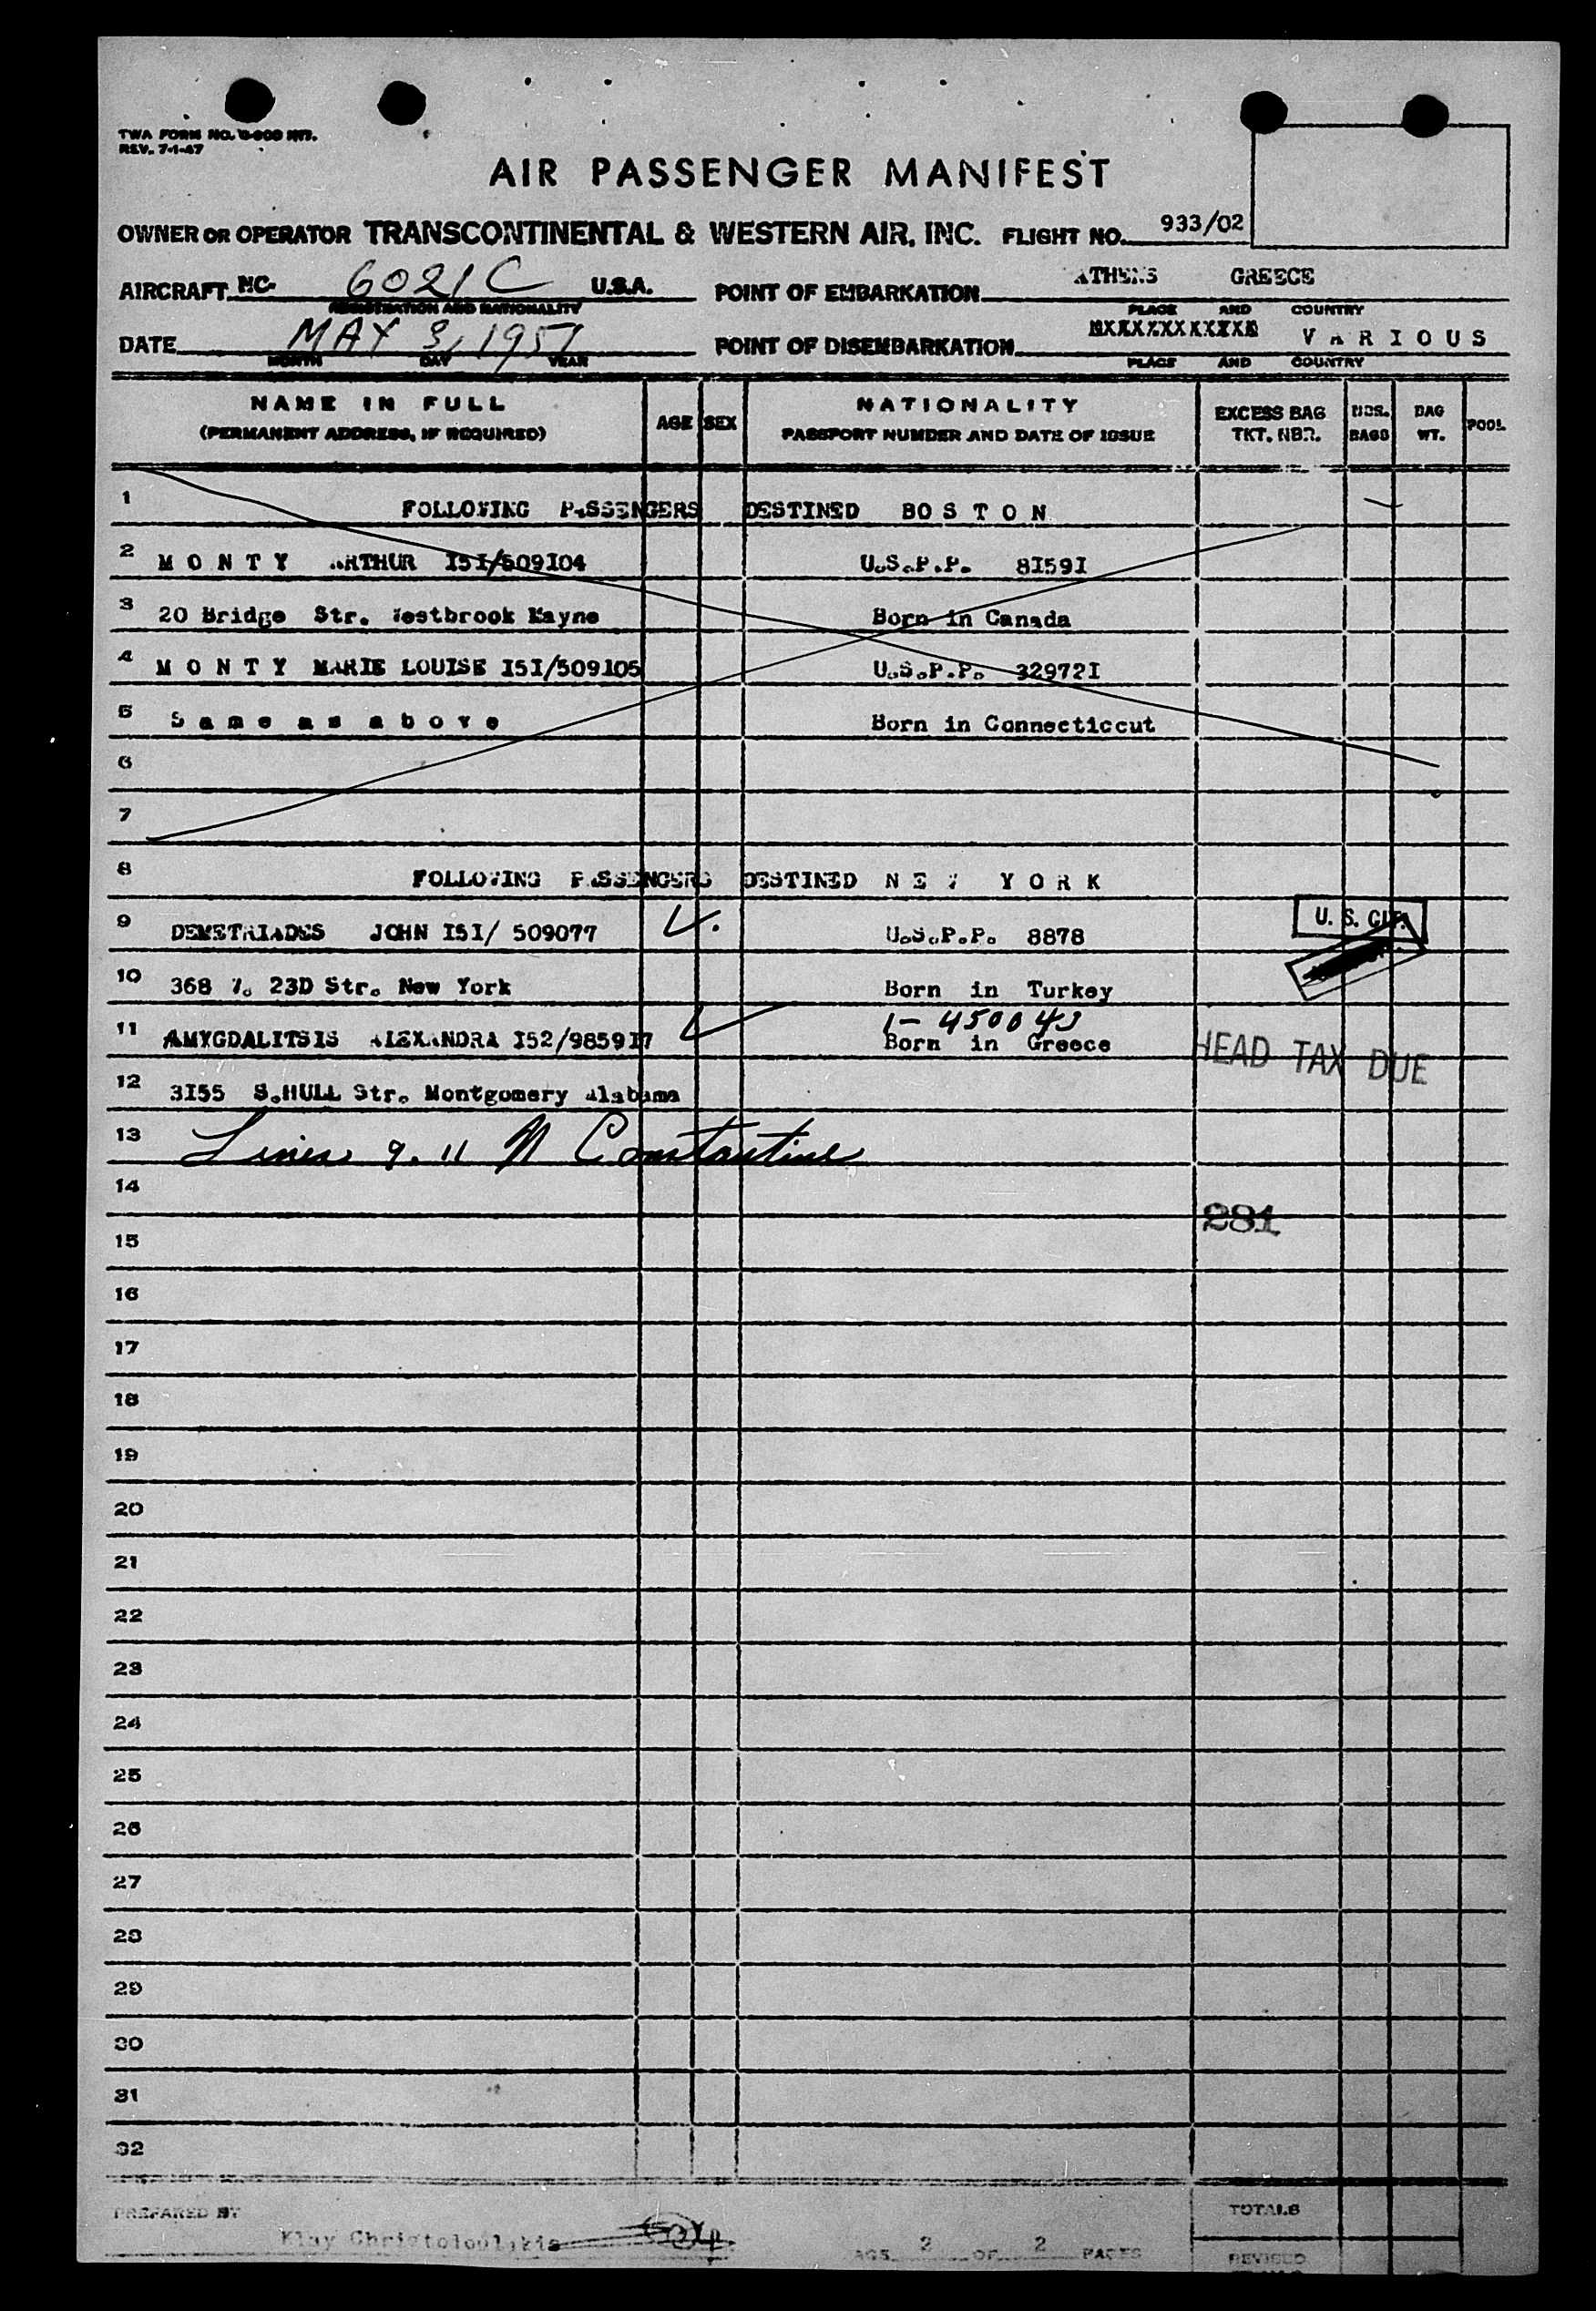 TWA FORM NO.
REV. 7-1-47
AIR PASSENGER MANIFEST
OWNER OR OPERATOR TRANSCONTINENTAL & WESTERN AIR, INC. FLIGHT NO. 933/02
AIRCRAFT NC- 6021C U.S.A. POINT OF EMBARKATION ATHENS GREECE
REGISTRATION AND NATIONALITY PLACE AND COUNTRY
DATE MAY 3, 1951 POINT OF DISEMBARKATION VARIOUS
MONTH DAY YEAR PLACE AND COUNTRY
NAME IN FULL AGE SEX NATIONALITY EXCESS BAG NBR. BAG POOL
(PERMANENT ADDRESS, IF REQUIRED) PASSPORT NUMBER AND DATE OF ISSUE TKT. NBR. BAGS WT.
1 FOLLOWING PASSENGERS DESTINED BOSTON
2 MONTY ARTHUR I5I/509I04 U.S.P.P. 8I59I
3 20 Bridge Str. Westbrook Mayne Born in Canada
4 MONTY MARIE LOUISE I5I/509105 U.S.P.P. 32972I
5 Same as above Born in Connecticcut
6
7
8 FOLLOWING PASSENGERS DESTINED NEW YORK
9 DEMETRIADES JOHN I5I/ 509077 U.S.P.P. 8878 U. S. CIT.
10 368 W. 23D Str. New York Born in Turkey
1- 450043
11 AMYGDALITSIS ALEXANDRA I52/985917 Born in Greece HEAD TAX DUE
12 3I55 S.HULL Str. Montgomery Alabama
13 Lines 9. 11 N Constantine
14
281
15
16
17
18
19
20
21
22
23
24
25
26
27
28
29
30
31
32
PREPARED BY TOTALS
Klay 2 OF 2 PAGES
REVISED